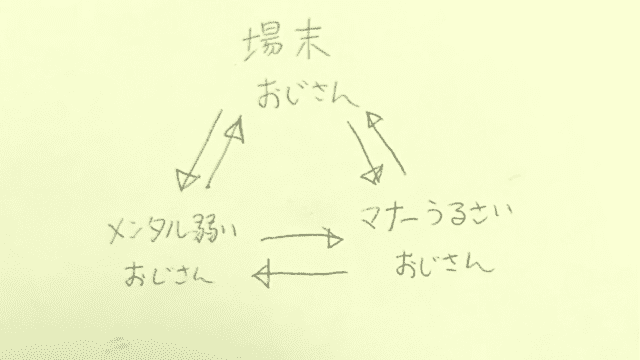 場末
おじさん
メンタル弱い
おじさん
マナーうるさい
おじさん